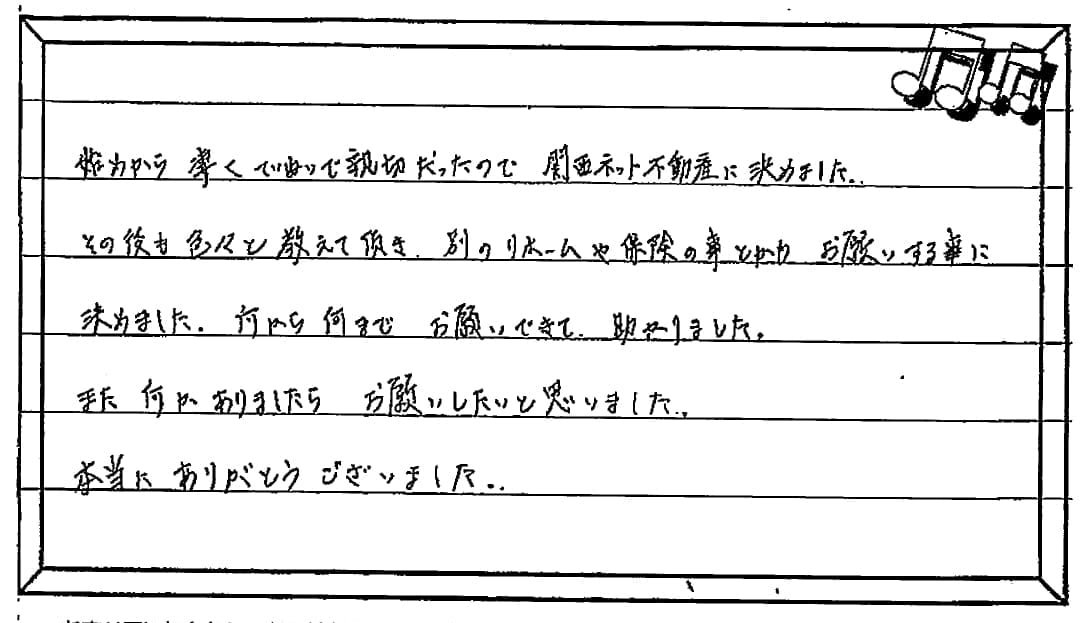 始めから 凄く てぃねいで親切だったので 関西ネット不動産に決めました。
その後も色々と教えて頂き、別のリホームや保険の事とかお願いする事に
決めました。何から何まで お願いできて、助かりました。
また 何かありましたら お願いしたいと思いました。
本当に ありがとうございました。